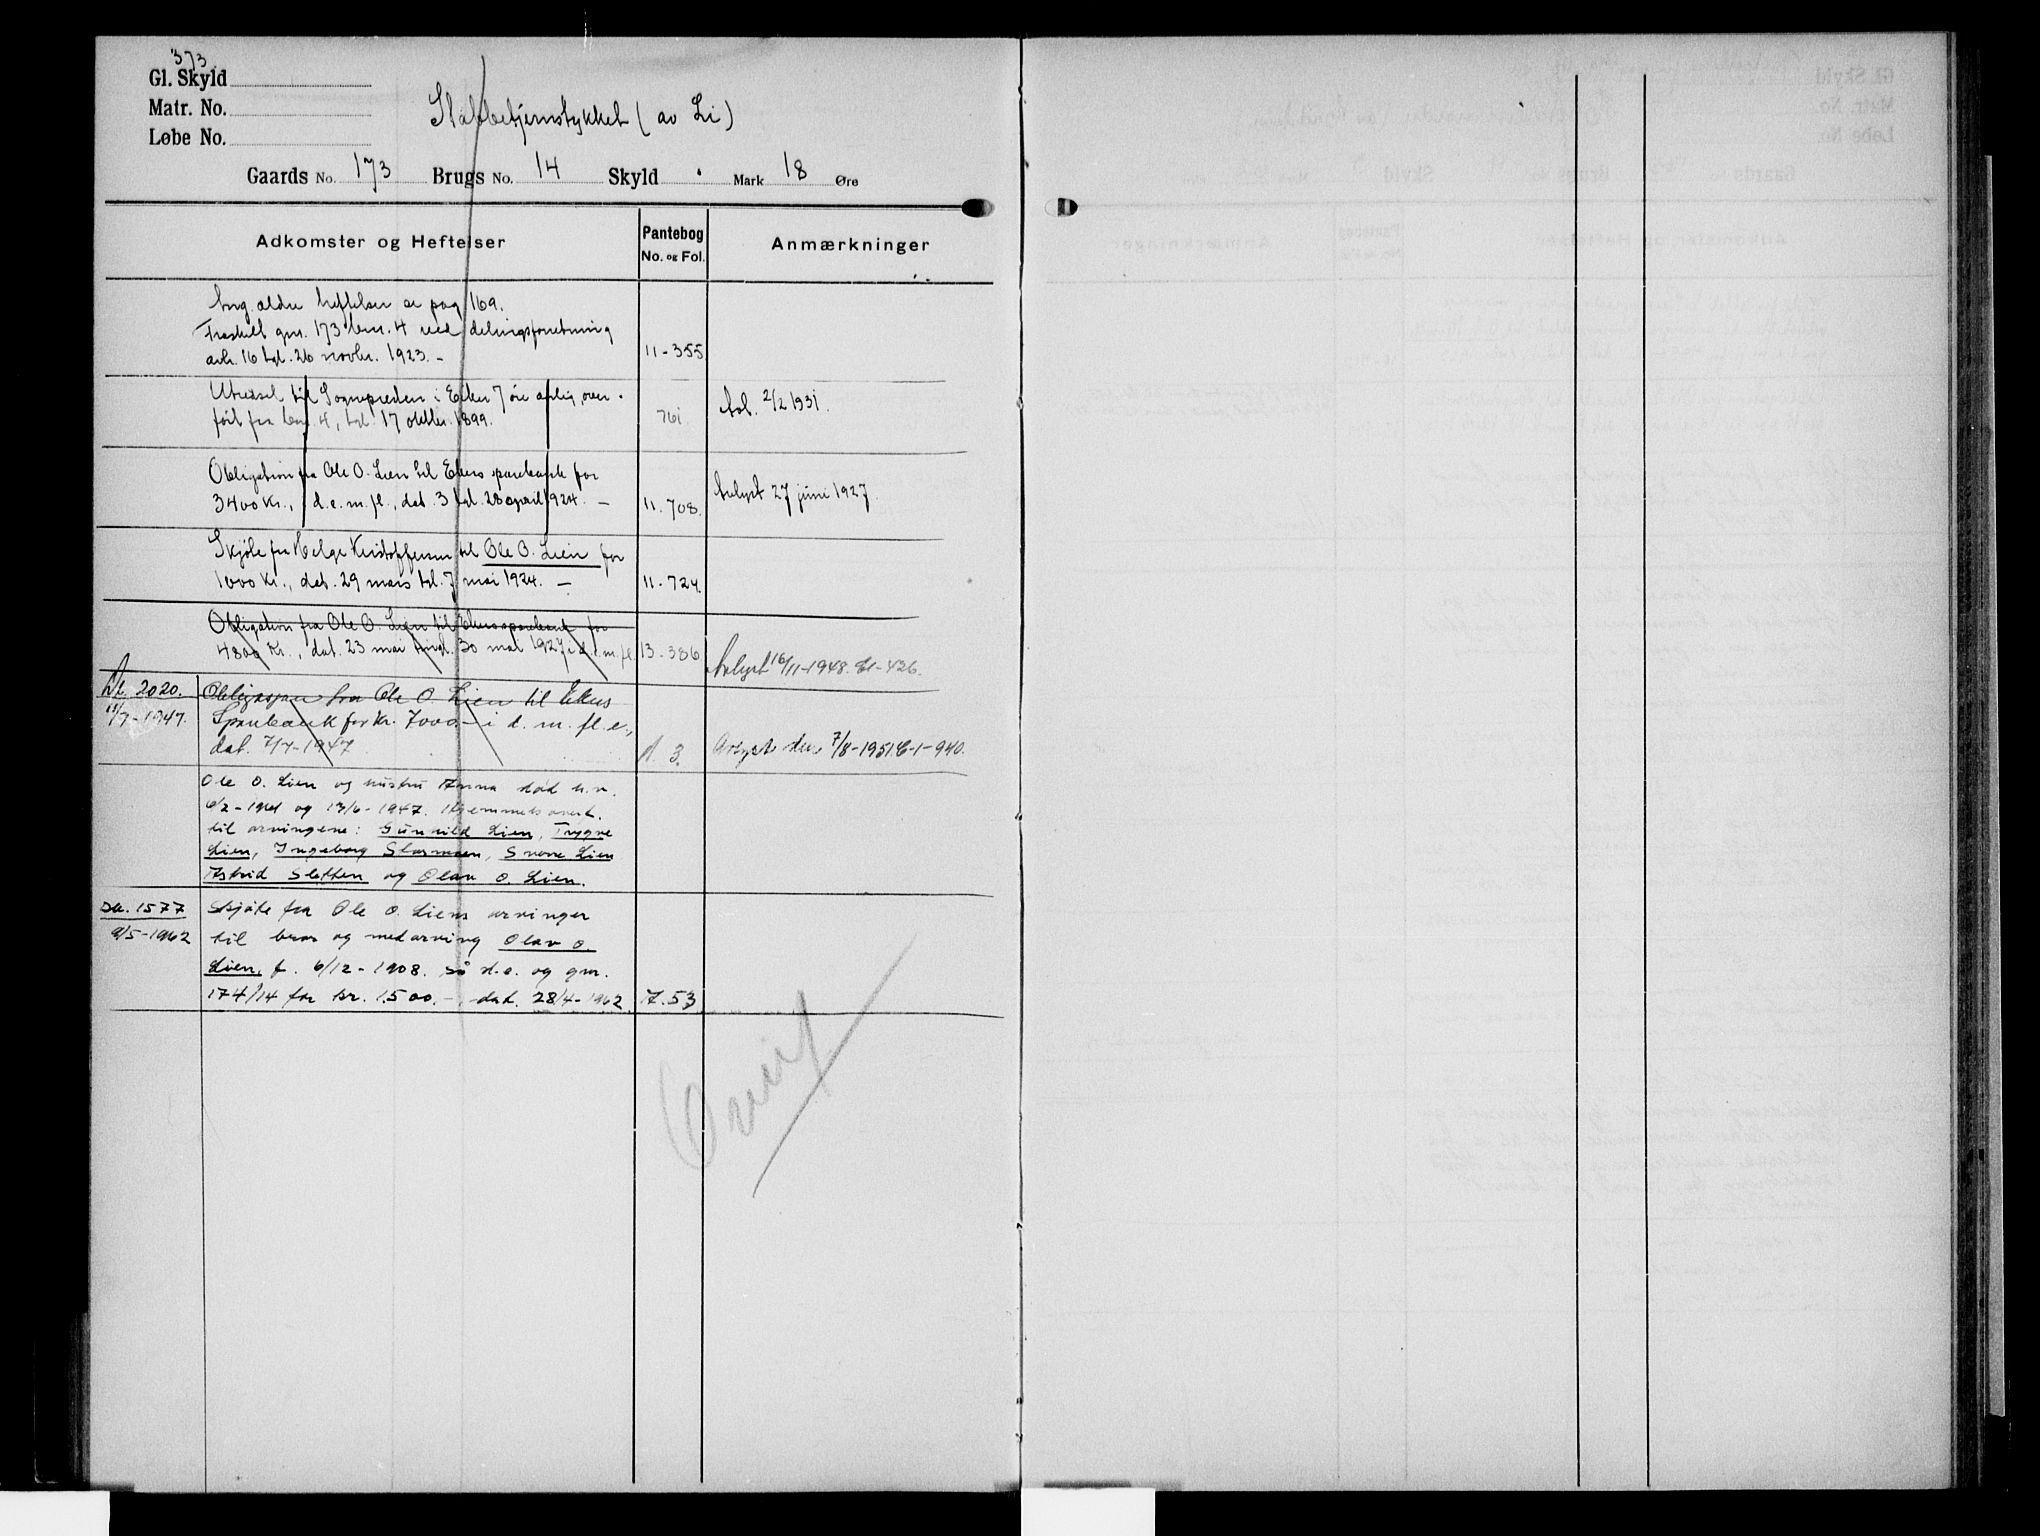 373
Gl. Skyld
Matr. No.
Løbe No.
Stabbetjernstykket (av Li)
Gaards No. 173 Brugs No. 14 Skyld . Mark 18 Øre
Adkomster og Heftelser
Pantebog
No. og Fol.
Anmærkninger
Ang. ældre heftelser se pag 169.
Fraskilt gnr. 173 bnr. 4 ved delingsforretning
avh. 16 tgl. 26 novbr. 1923. – 11-355
Utredsel til Sognepresten i Eiker 7 øre årlig, over-
ført fra bnr. 4, tgl. 17 oktbr. 1899. 761. Avl. 2/2 1931.
Obligation fra Ole O. Lien til Ekers sparebank for
3400 Kr., i d.e.m.fl., dat. 3 tgl. 28 april 1924. – 11-708. Avlyst 27 juni 1927.
Skjøte fra Helge Kristoffersen til Ole O. Lien for
1000 Kr., dat. 29 mars tgl. 7 mai 1924. – 11-724.
Obligation fra Ole O. Lien til Ekers sparebank for
4800 Kr., dat. 23 mai tingl. 30 mai 1927 i d.e.m.fl. 13-386 Avlyst 16/11-1948. 21-426.
2020. Obligasjon fra Ole O. Lien til Ekers
11/7-1947. Sparebank for Kr. 7000.– i d. m. fl. e.,
dat. 7/7-1947 A. 3. Avlyst den 7/8-1951. C-1-940.
Ole O. Lien og hustru Anna død h.v.
6/2-1941 og og 13/6-1947. Hjemmels overt.
til arvingene: Gunhild Lien, Trygve
Lien, Ingeborg Stormoen, Sverre Lien
Astrid Sletten og Olav O. Lien.
Da. 1577 Skjøte fra Ole O. Liens arvinger
9/5-1962 til bror og medarving Olav O.
Lien, f. 6/12-1908. på d.e. og gnr.
174/14 for kr. 1.500.–, dat. 28/4-1962. A. 53